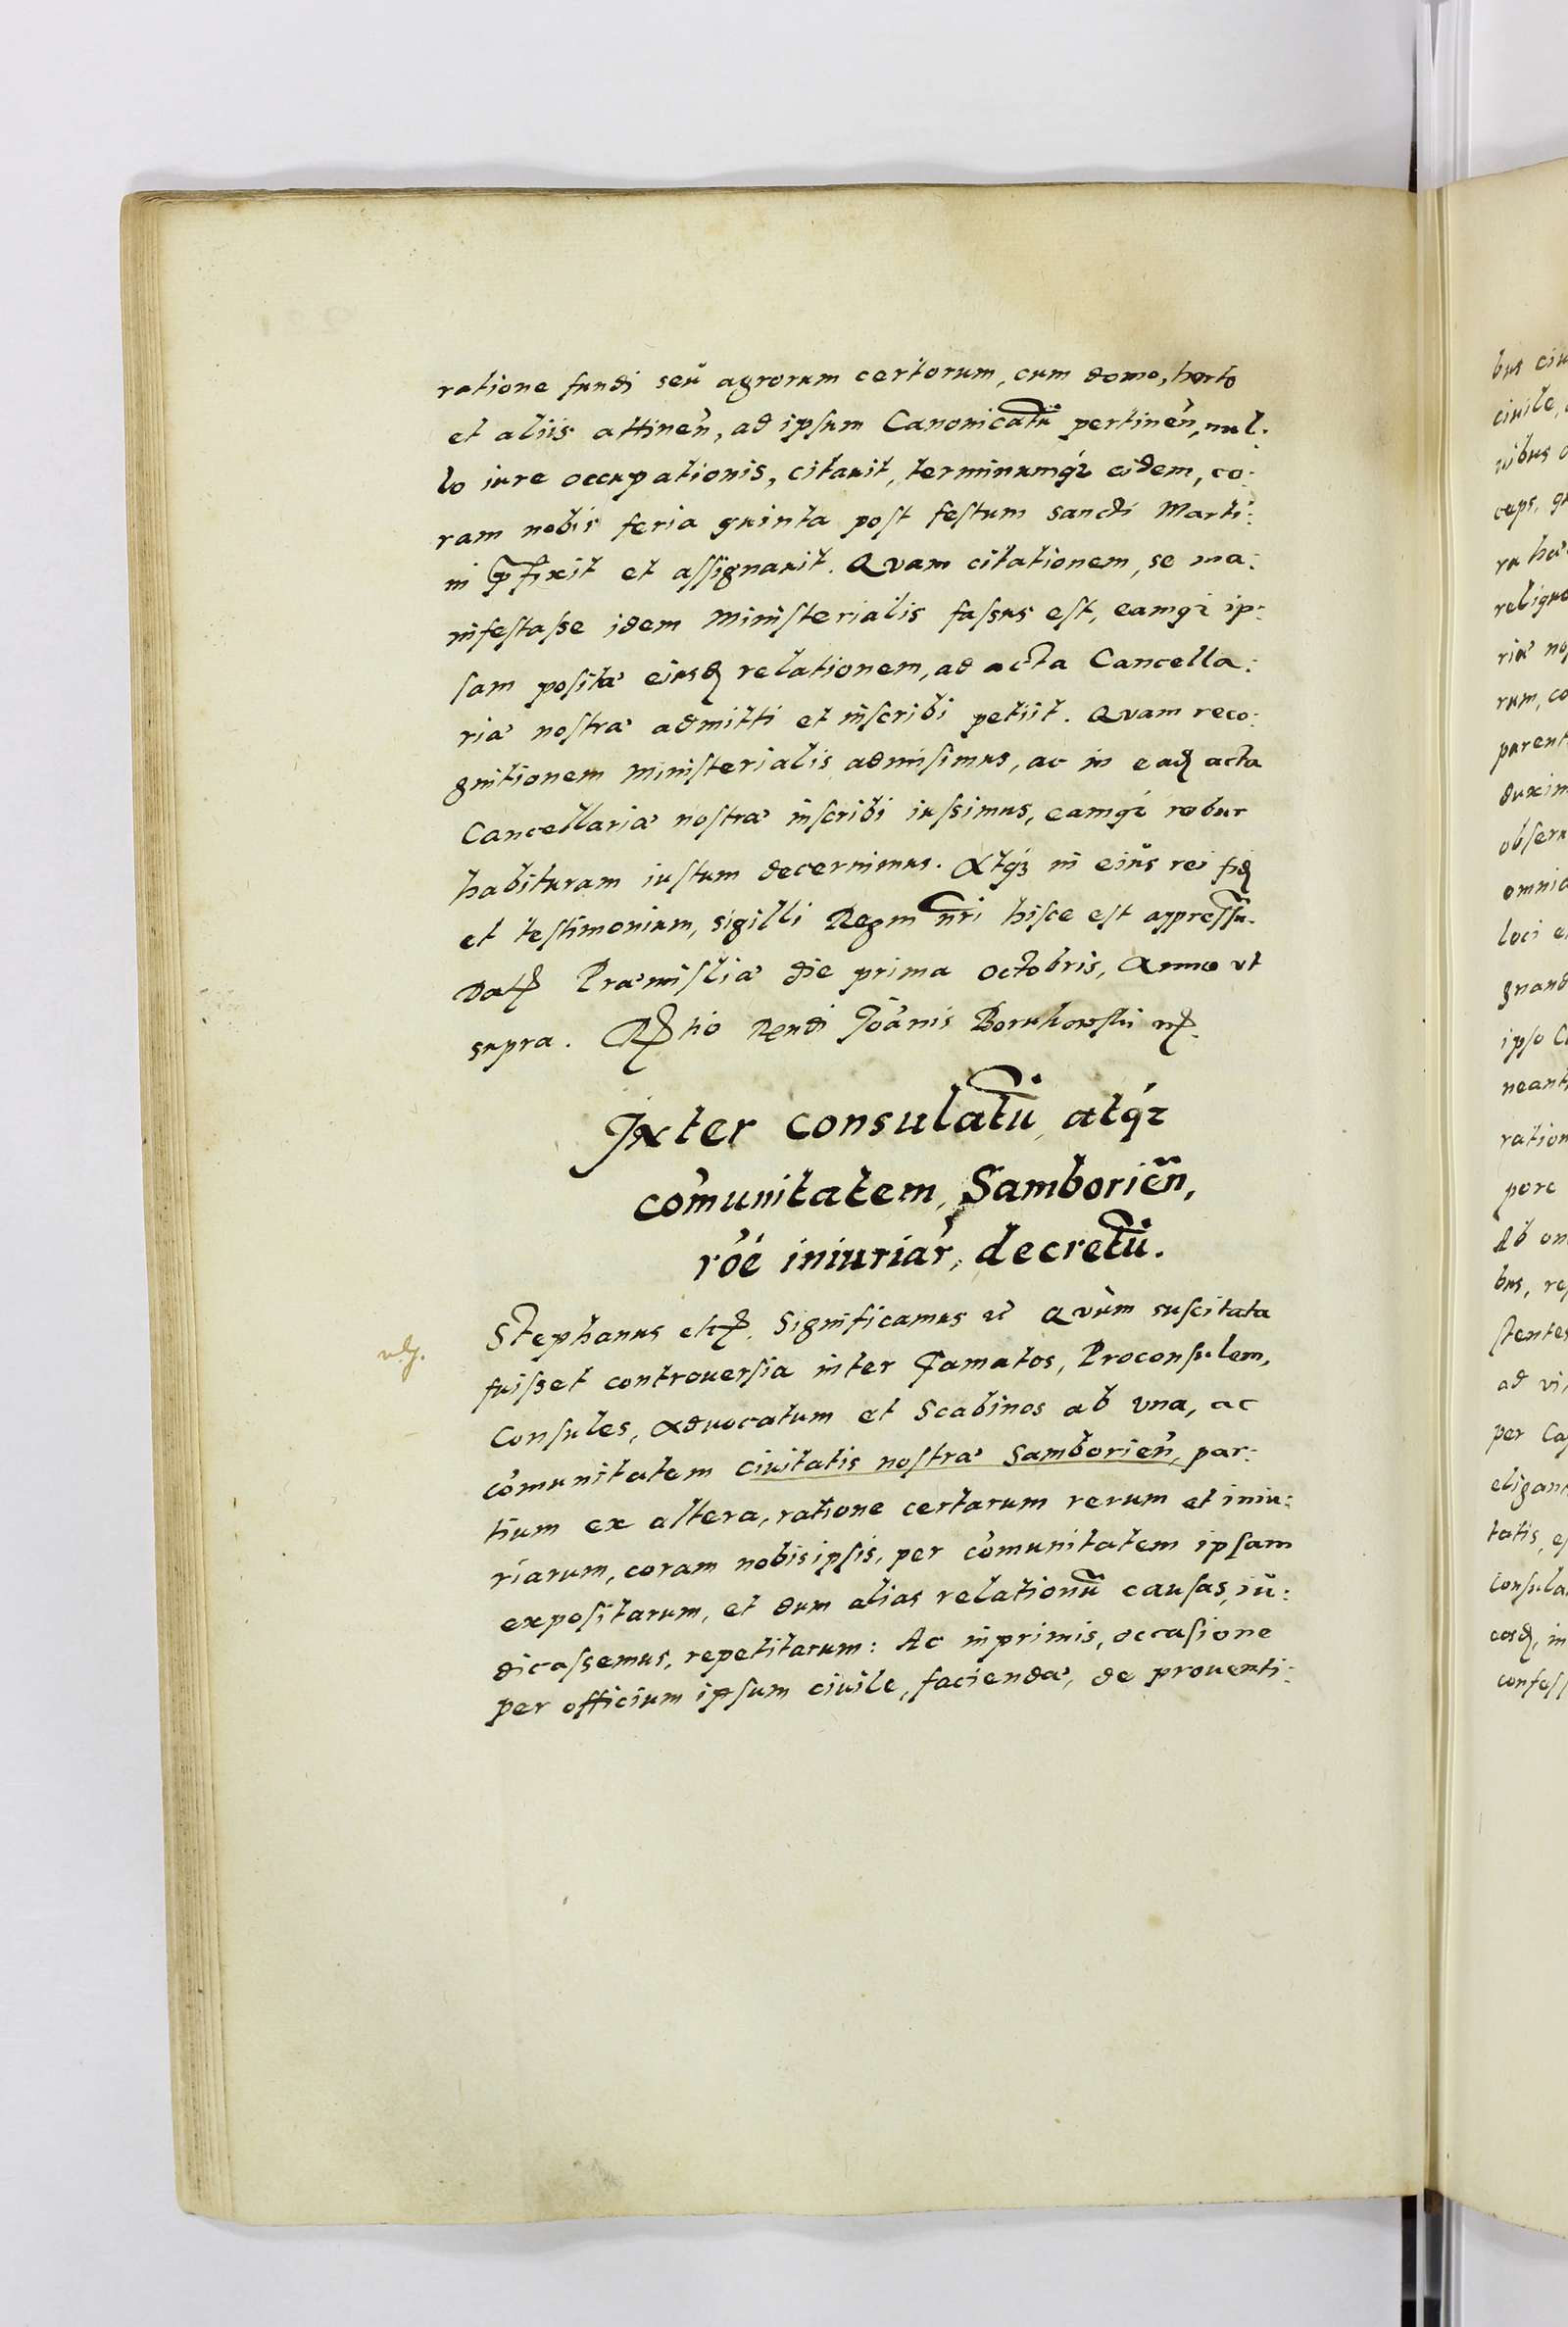 ratione fundi seu agrorum certorum, cum domo, horto
et aliis attineñ, ad ipsum Canonicatũ pertineñ, nul:
lo iure occupationis, citauit, terminumq́ꝫ eidem, co:
ram nobis feria quinta post festum sancti Marti:
ni p̄fixit et assignauit. Quam citationem, se ma:
nifestasse idem Ministerialis fassus est, eamqꝫ ip:
sam positæ eiusdꝫ relationem, ad acta Cancella:
riæ nostræ admitti et inscribi petiit. Quam reco:
gnitionem Ministerialis admisimus, ac in eadꝫ acta
Cancellariæ nostræ inscribi iussimus, eamq́ꝫ robur
habituram iustum decernimus. Atq́ꝫ in eius rei fidꝫ
et testimonium, sigillũ Regni nr̃i hisce est appressũ.
Datꝫ Præmisliæ die prima Octobris, Anno vt
supra. Rꝫtio Rendi Joãnis Borukowski
Inter consulatũ, atq́ꝫ
cõmunitatem, Samborieñ,
rõe iniuriar̃, decretũ.
Stephanus etcꝫ. Significamus ꝛc̃ Quum suscitata
fuisset controuersia inter Famatos, Proconsulem,
Consules, Aduocatum et Scabinos ab vna, ac
cõmunitatem ciuitatis nostræ Samborieñ, par:
tium ex altera, ratione certarum rerum et iniu:
riarum, coram nobis ipsis, per cõmunitatem ipsam
expositarum, et dum alias relationũ causas, iu:
dicassemus, repetitarum: Ac inprimis, occasione
per officium ipsum ciuile, faciendæ, de prouenti:
bus ciu
ciuile,
ceps,
ra hæ
riæ no
rum, co
parent
duxim
obseru
omnia
loci e
quand
ipso C
neant
ration
Ab om
bus, re
stentes
ad vi
per Ca
eligan
tatis, e
consula
eosdꝫ, in
confess